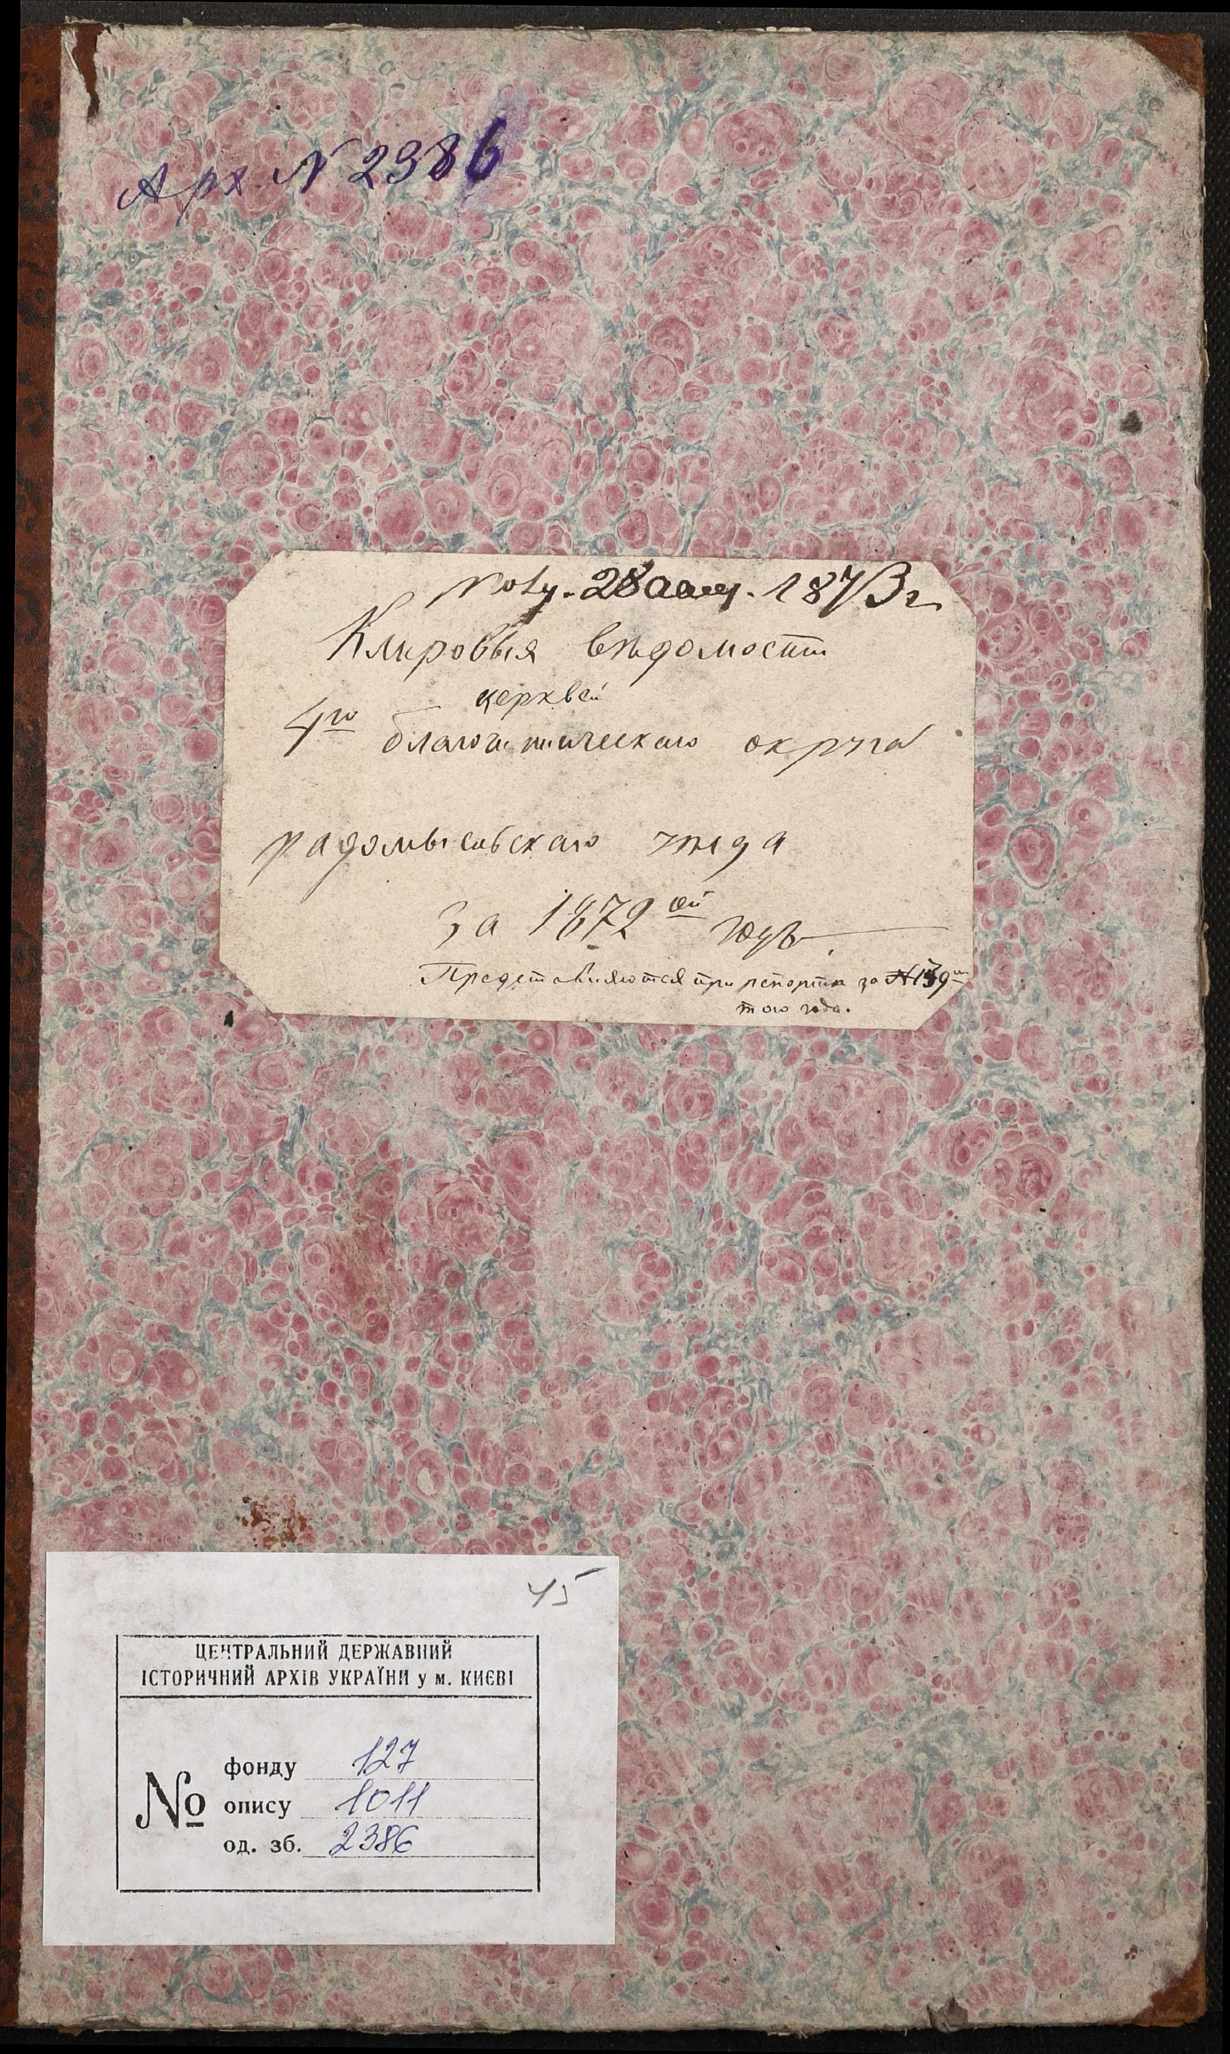 Арх. № 2386
Полу. 28 1873 г
Клировыя вѣдомости
церквей
4го благочинническаго округа
радомысльскаго уѣзда
За 1872 ой годъ.
Представляются при репортѣ за № 139 м
того года.
45
ЦЕНТРАЛЬНИЙ ДЕРЖАВНИЙ
ІСТОРИЧНИЙ АРХІВ УКРАЇНИ у м. КИЄВІ
№
фонду 127
опису 1011
од. зб. 2386